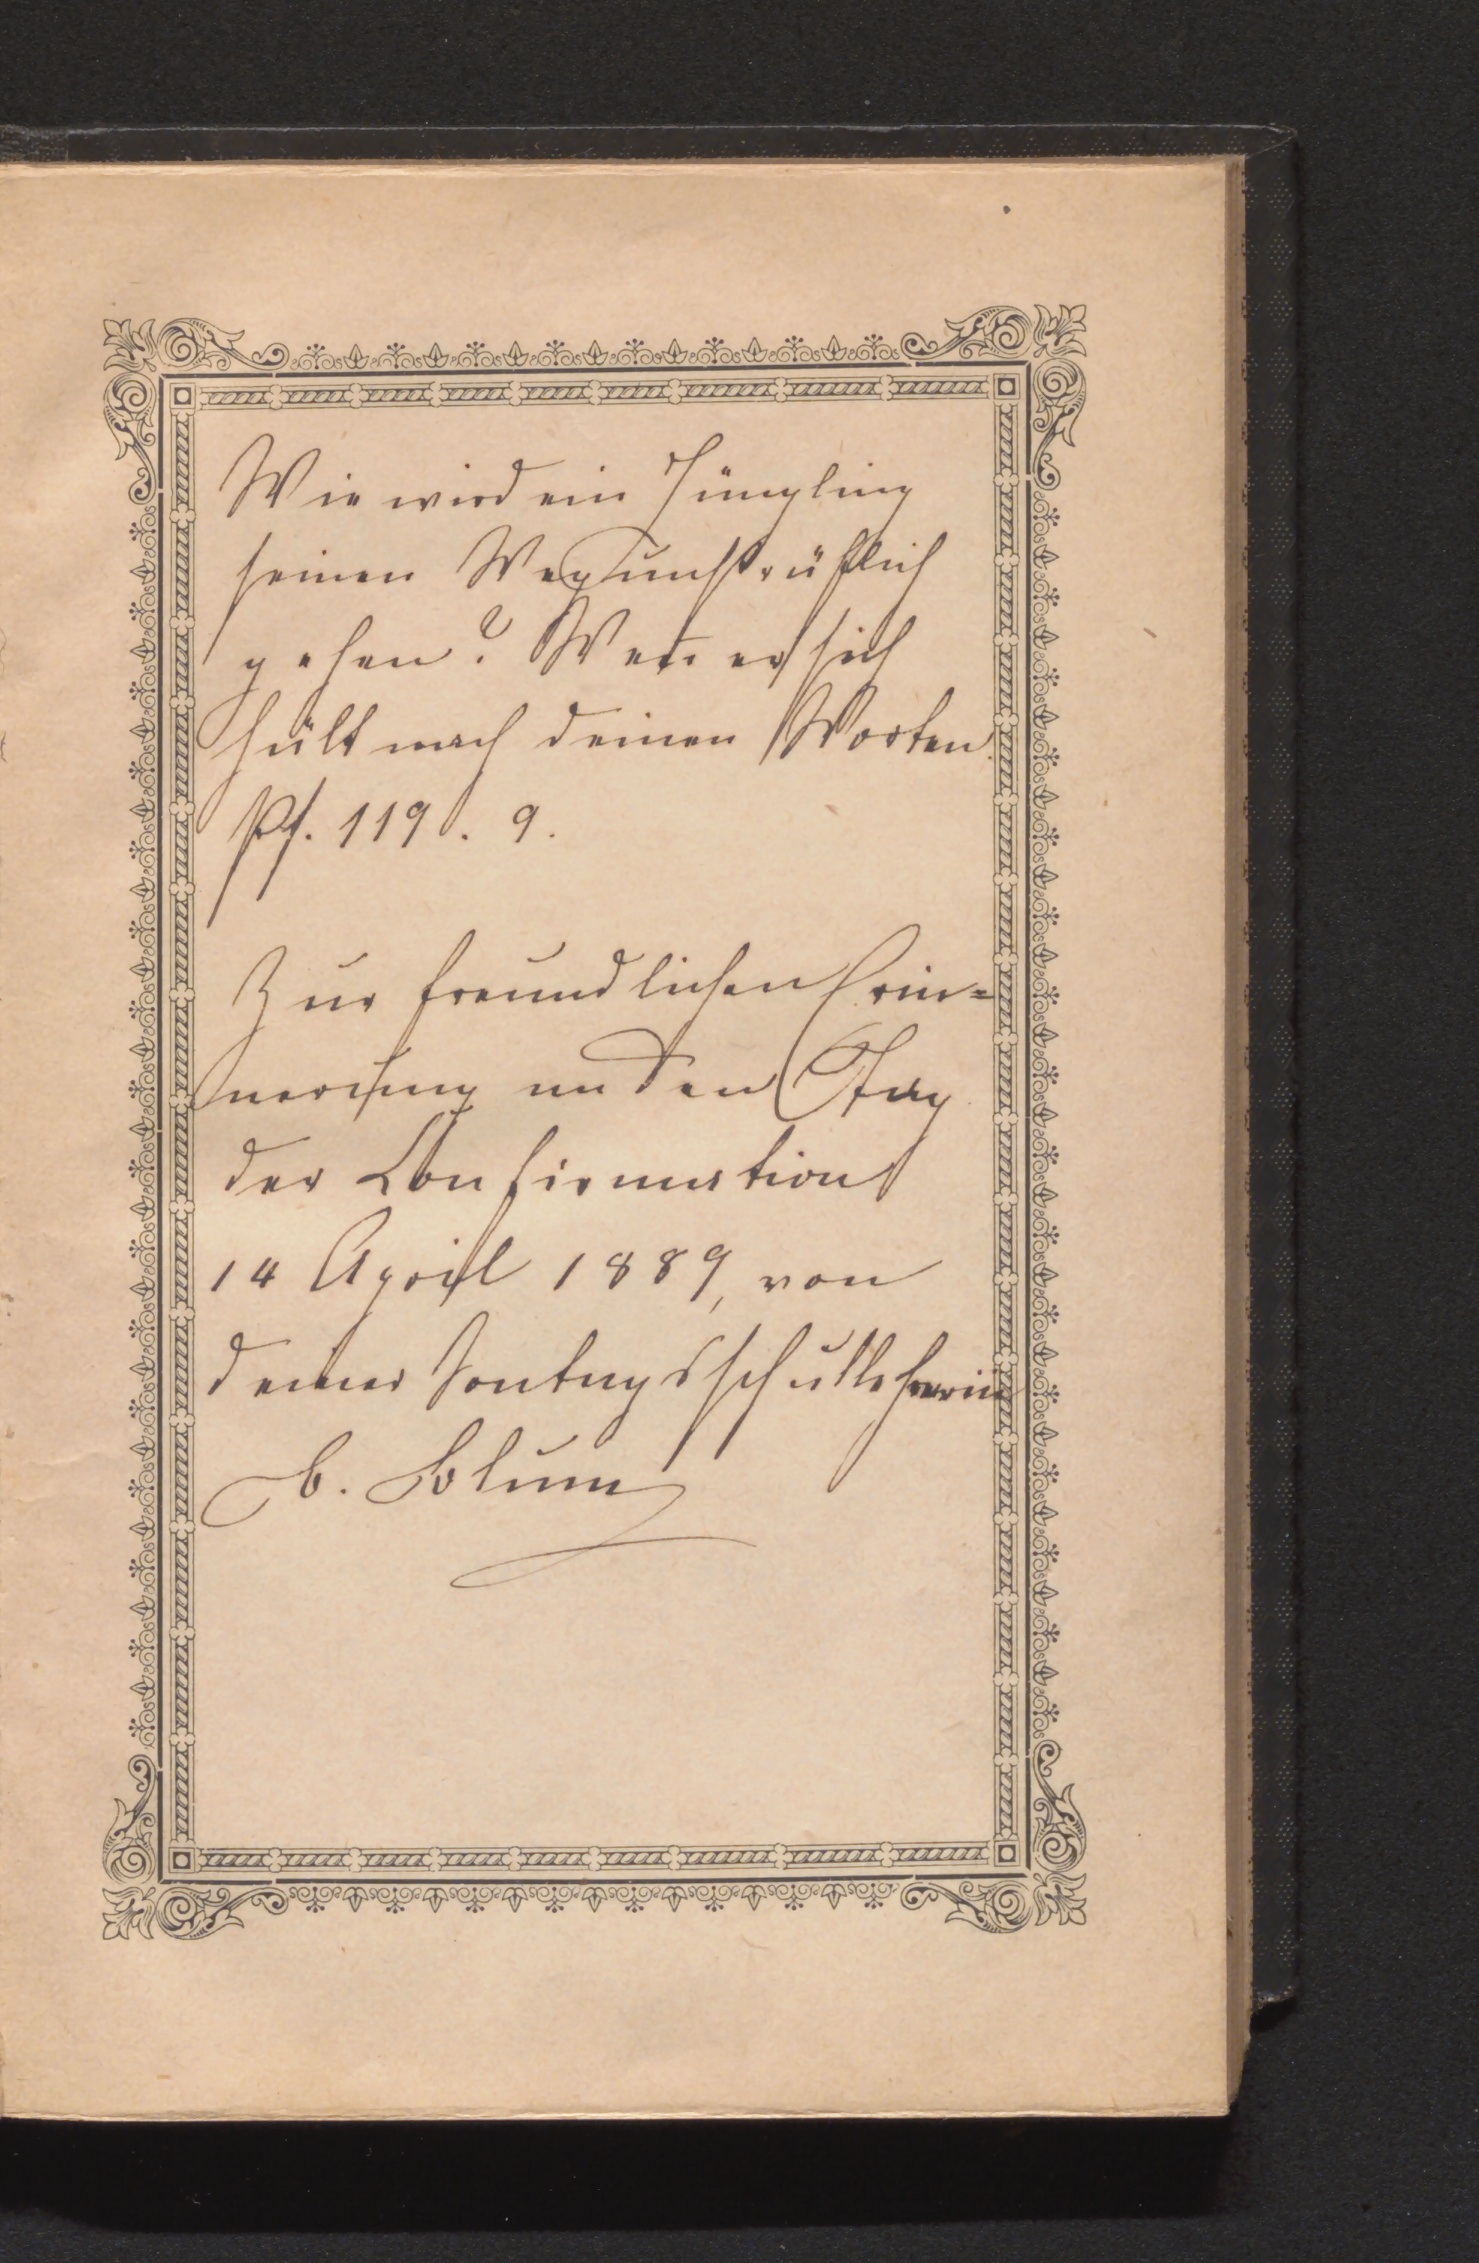 Wie wird ein Jüngling
seinen Weg unsträflich
gehen? Weñ er sich
hält nach deinen Worten.
Ps. 119. 9.
Zur freundlichen Erin=
nerung an den Tag
der Confirmation
14 April 1889, von
deiner Sontagsschullehrerin
C. Blum